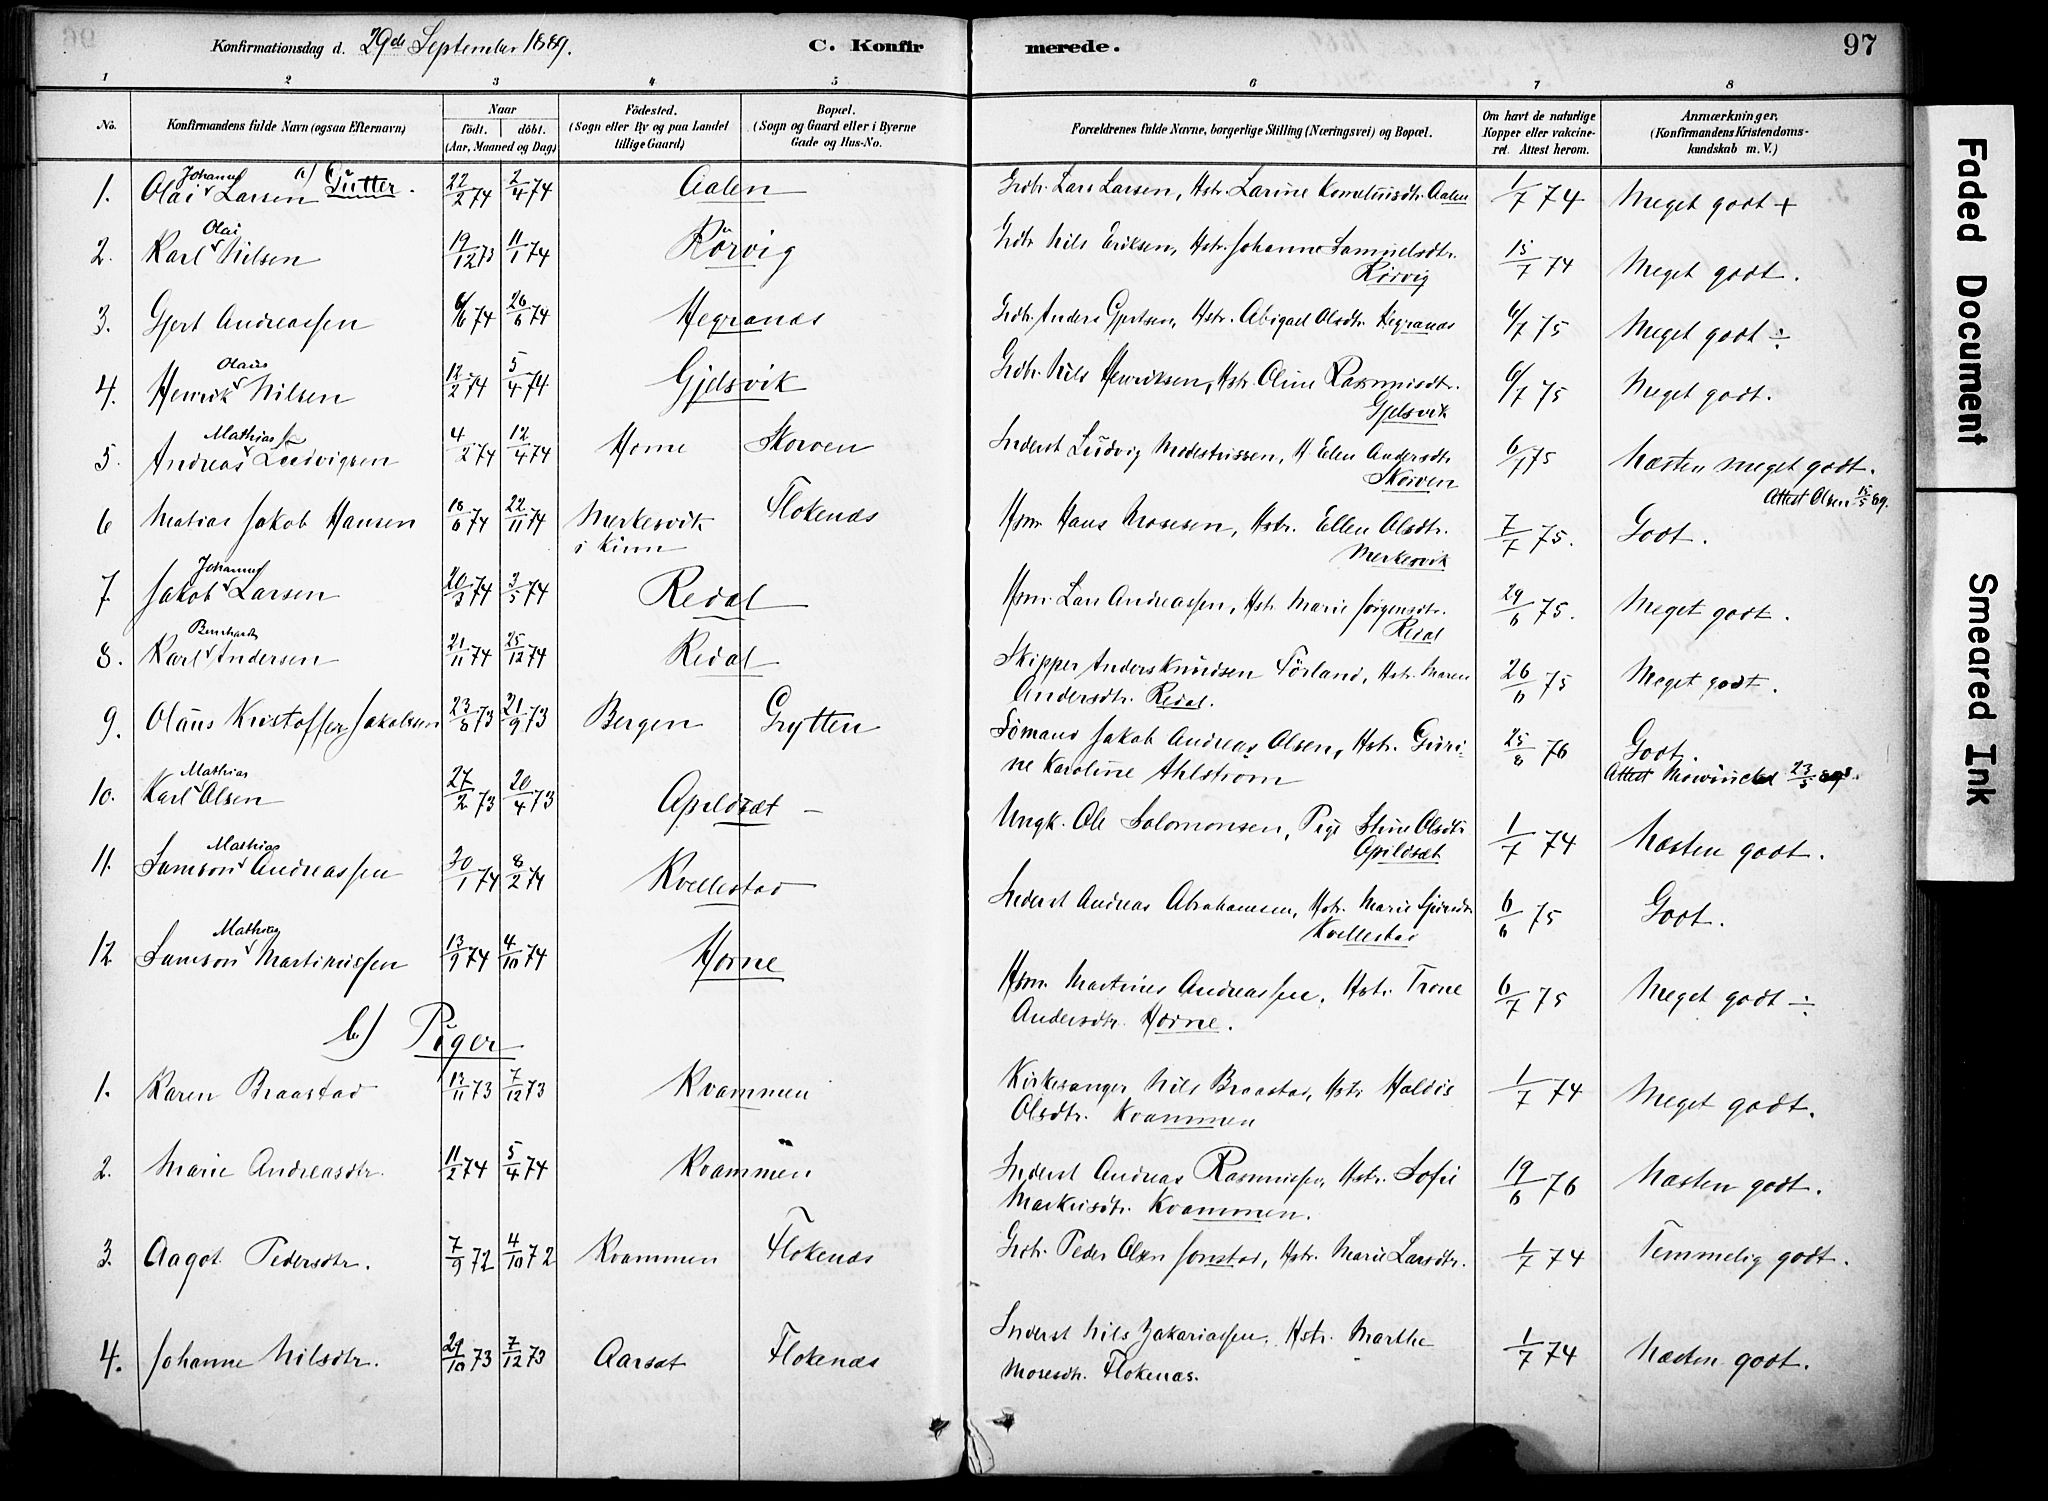 Konfirmationsdag d. 29de September 1889.
C. Konfirmerede.
97
1 2 3 4 5 6 7 8
No.
Konfirmandens fulde Navn (ogsaa Efternavn)
Naar
födt. döbt.
(Aar, Maaned og Dag)
Födested.
(Sogn eller By og paa Landet
tillige Gaard)
Bopæl.
(Sogn og Gaard eller i Byerne
Gade og Hus-No.
Forældrenes fulde Navne, borgerlige Stilling (Næringsvei) og Bopæl.
Om havt de naturlige
Kopper eller vakcine-
ret. Attest herom.
Anmærkninger,
(Konfirmandens Kristendoms-
kundskab m. V.)
a) Gutter.
1. Olai Johannes Larsen 22/2 74 2/4 74 Aalen Grdbr. Lars Larsen, Hstr. Larine Korneliusdtr. Aalen 1/7 74 Meget godt +
2. Karl Olai Nilsen 19/12 73 11/1 74 Rörvig Grdbr. Nils Eriksen, Hstr. Johanne Samuelsdtr.
Rörvig 15/7 74 Meget godt.
3. Gjert Andreassen 6/6 74 26/6 74 Hegranæs Grdbr. Anders Gjertsen, Hstr. Abigael Olsdtr. Hegranæs 6/7 75 Meget godt ÷
4. Henrik Olaus Nilsen 12/2 74 5/4 74 Gjelsvik Grdbr. Nils Henriksen, Hstr. Oline Rasmusdtr.
Gjelsvik 6/7 75 Meget godt.
5. Andreas Mathias Ludvigsen 4/2 74 12/4 74 Horne Skorven Inderst Ludvig Modestussen, H. Elen Andersdtr
Skorven 6/7 75 Næsten meget godt.
6 Matias Jakob Hansen 18/6 74 22/11 74 Merkesvik
i Kinn Flokenæs Hsm. Hans Mosesen, Hstr. Ellen Olsdtr.
Merkesvik 7/7 75. Godt.
Attest Olsen 15/5 89.
7. Jakob Johannes Larsen 20/3 74 3/5 74 Redal Hsm. Lars Andreassen, Hstr. Marie Jörgensdtr.
Redal 29/6 75. Meget godt.
8. Karl Bernhardt Andersen 21/11 74 25/12 74 Redal Skipper Anders Knudsen Förland, Hstr. Maren
Andersdtr. Redal. 26/6 75 Meget godt.
9. Olaus Kristoffer Jakobsen 23/8 73 21/9 73 Bergen Grytten Sömand Jakob Andreas Olsen, Hstr. Guri-
ne Karoline Ahlström 25/8 76 Godt.
Attest Mowinckel 23/5 89.
10. Karl Mathias Olsen 27/2 73 20/4 73 Apildsæt Ungk. Ole Salomonsen, Pige Stine Olsdtr.
Apildsæt 1/7 74 Næsten godt.
11. Samson Mathias Andreassen 30/1 74 8/2 74 Kvellestad Inderst Andreas Abrahamsen, Hstr. Marie
Kvellestad 6/6 75 Godt.
12 Samson Mathias Martinussen 13/9 74 4/10 74 Horne Hsm. Martinus Andreassen, Hstr. Trone
Andersdtr. Horne. 6/7 75 Meget godt ÷
b) Piger
1. Karen Braastad 13/11 73 7/12 73 Kvammen Kirkesanger Nils Braastad, Hstr. Haldis
Olsdtr. Kvammen 1/7 74 Meget godt.
2. Marie Andreasdtr. 11/2 74 5/4 74 Kvammen Inderst Andreas Rasmussen, Hstr. Sofie
Markusdtr. Kvammen. 19/6 76 Næsten godt.
3. Aagot Pedersdtr. 7/9 72 4/10 72 Kvammen Flokenæs Grdbr. Peder Olsen Jonstad, Hstr. Marie Larsdtr. 1/7 74 Temmelig godt.
4. Johanne Nilsdtr. 29/10 73 7/12 73 Aarsæt Flokenæs Inderst Nils Zakariassen, Hstr. Marthe
Mosesdtr. Flokenæs. 1/7 74 Næsten godt.
Faded Document
Smeared Ink